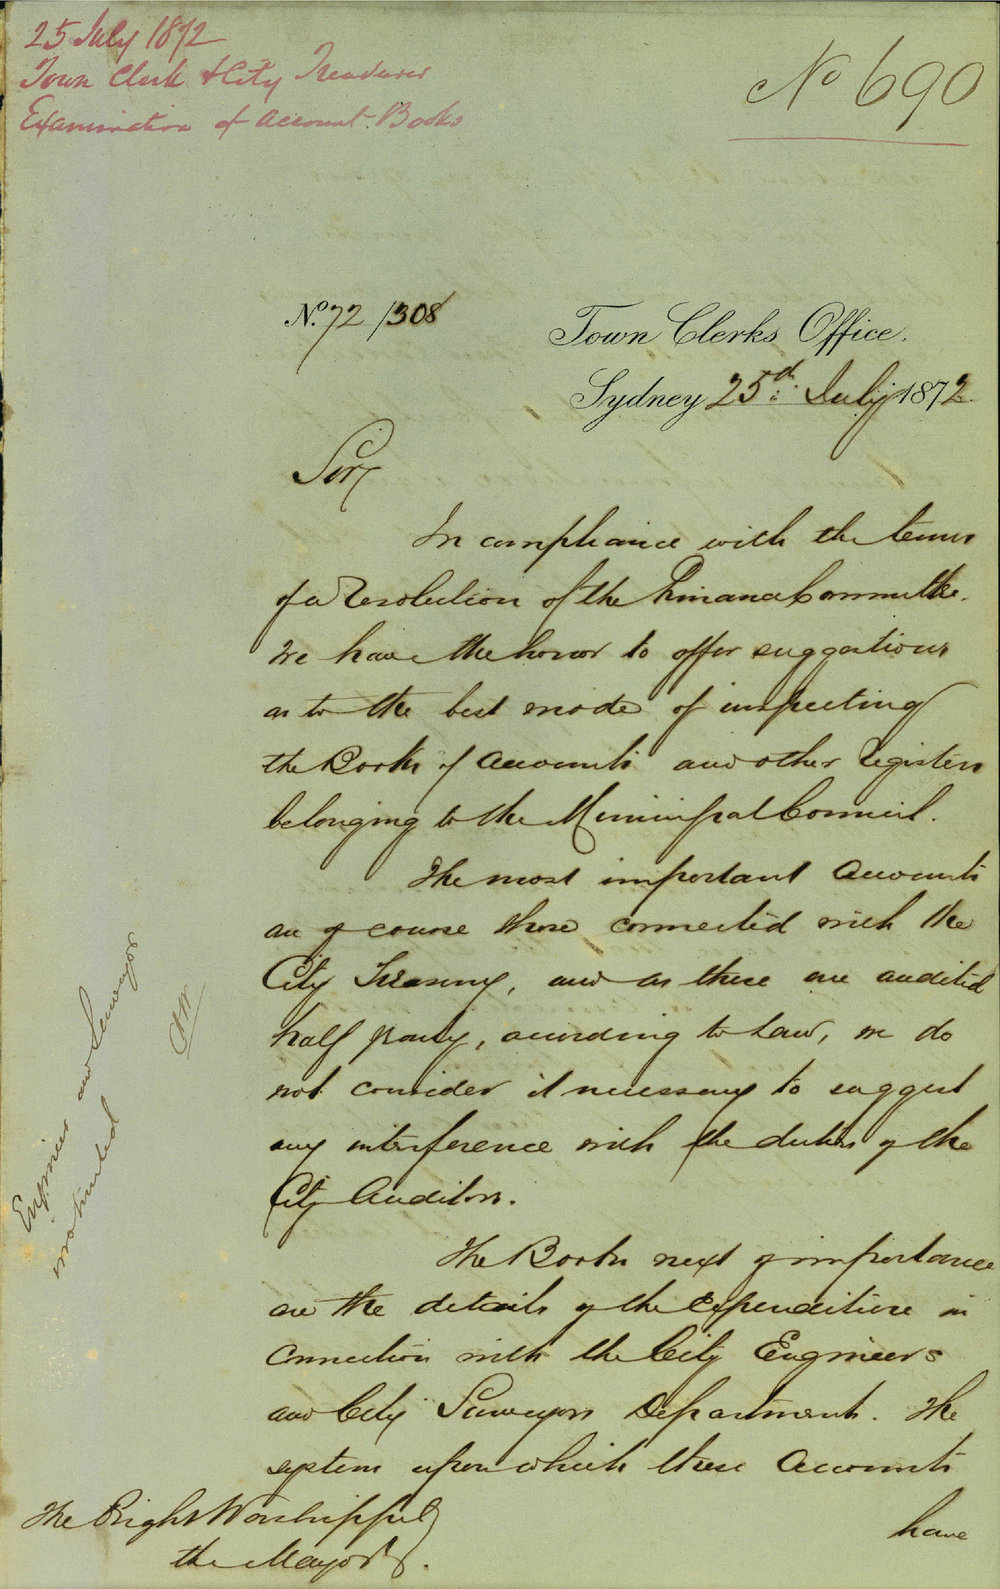 25 July 1872
Town Clerk & City Treasurer
Examination of Account Books
No 690
No. 72/308
Town Clerks Office.
Sydney 25th July 1872
Sir,
In compliance with the terms
of a Resolution of the Finance Committee.
We have the honor to offer suggestions
as to the best mode of inspecting
the Books of Accounts and other Registers
belonging to the Municipal Council.
The most important Accounts
are of course those connected with the
City Treasury, and as these are audited
half yearly, according to Law, we do
not consider it necessary to suggest
any interference with the duties of the
City Auditors.
The Books next of importance
are the details of the Expenditure in
connection with the City Engineers
and City Surveyors Departments. The
system upon which these Accounts
have
The Right Worshipful
the Mayor.
Engineer and Surveyor
instructed